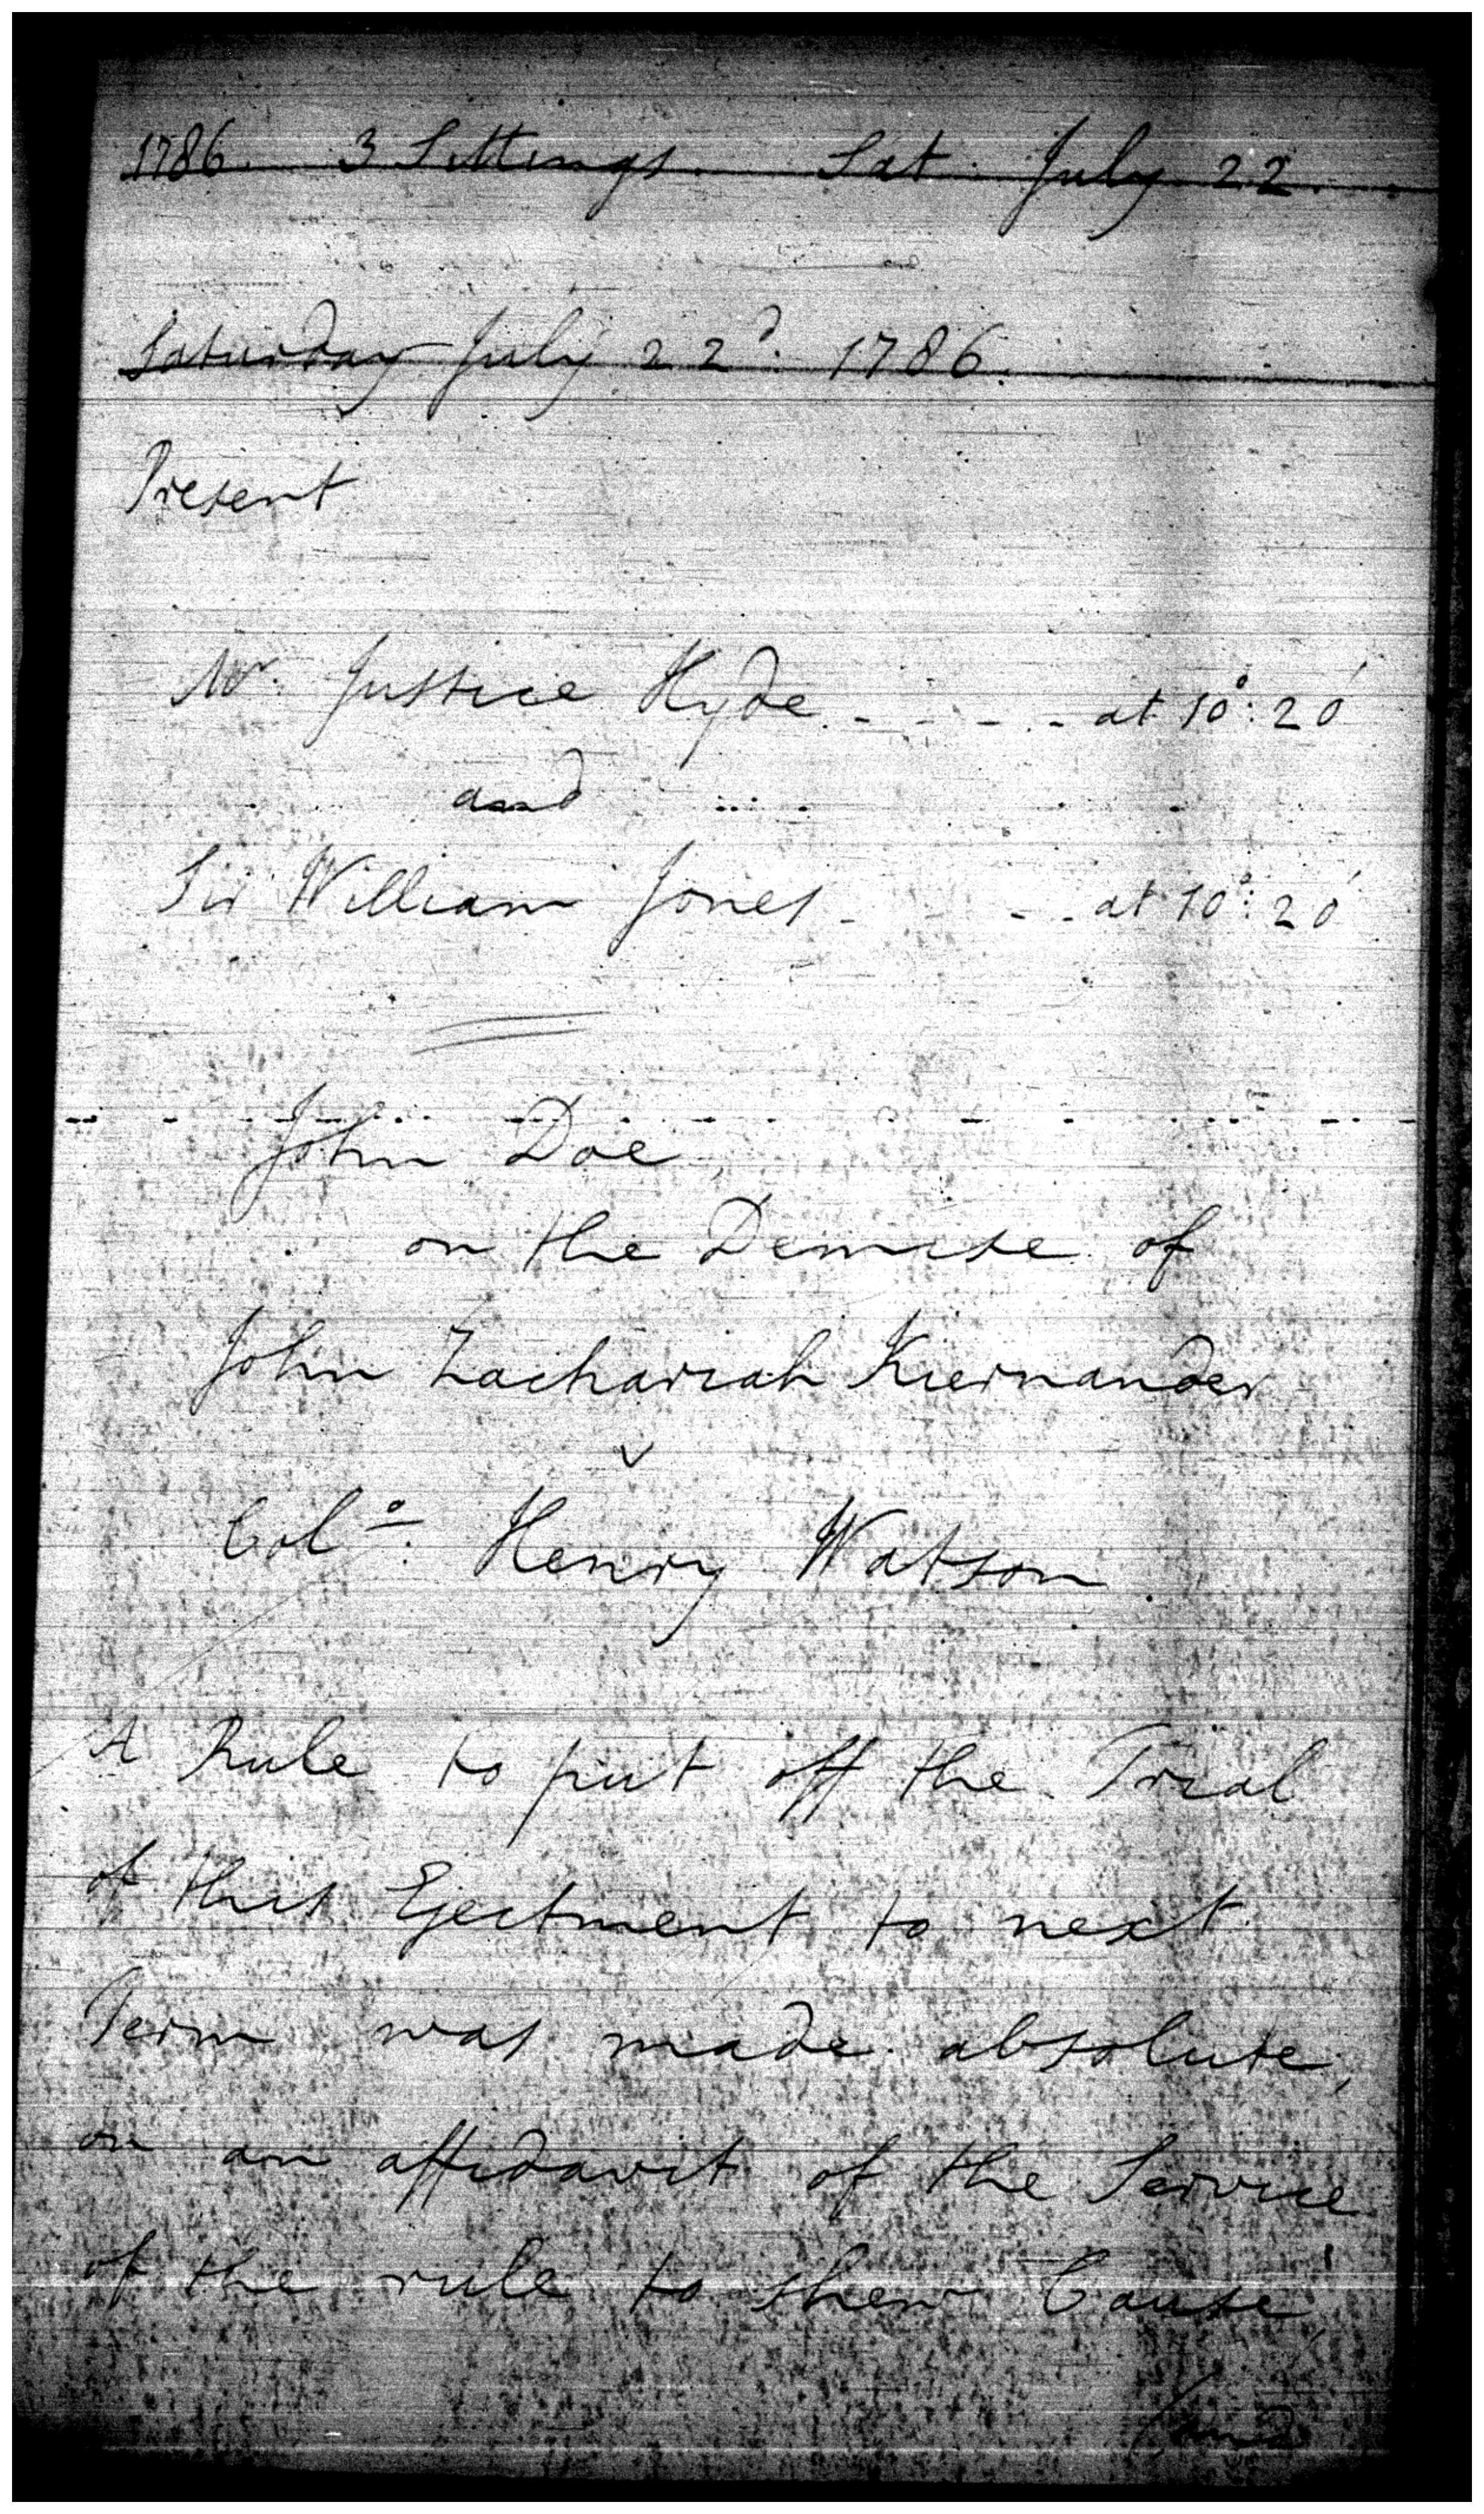 1786. 3 Sittings. Sat. July 22.
Saturday July 22d. 1786.
Present
Mr. Justice Hyde. - - - - at 10°: 20'
and
Sir William Jones - - - at 10°: 20'
John Doe,
on the Demise of
John Zachariah Kiernander
v
Colo. Henry Watson.
A Rule to put off the Trial
of this Ejectment to next
Term was made absolute,
on an affidavit of the Service
of the rule to shew Cause,
/and